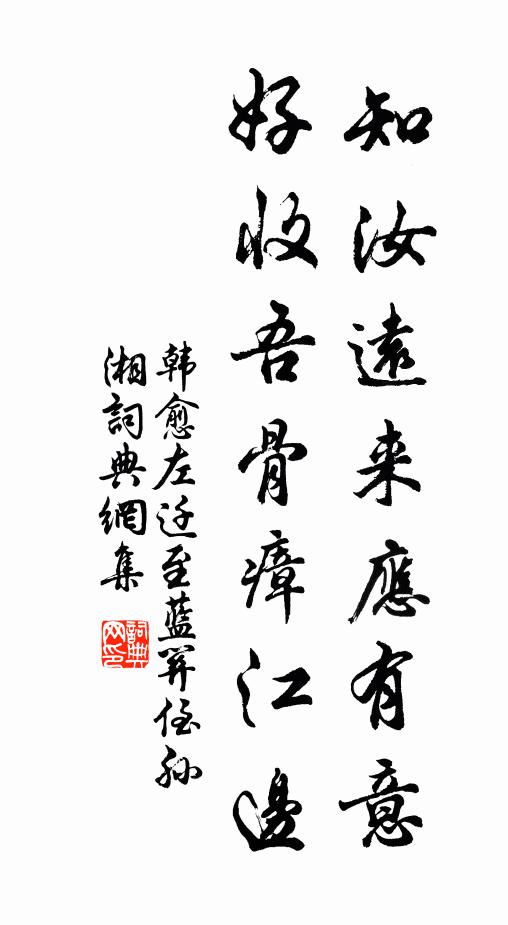 知汝遠来應有意
好收吾骨瘴江邊
韩愈左迁至蓝关侄孙
湘詞典網集
詞典
网印